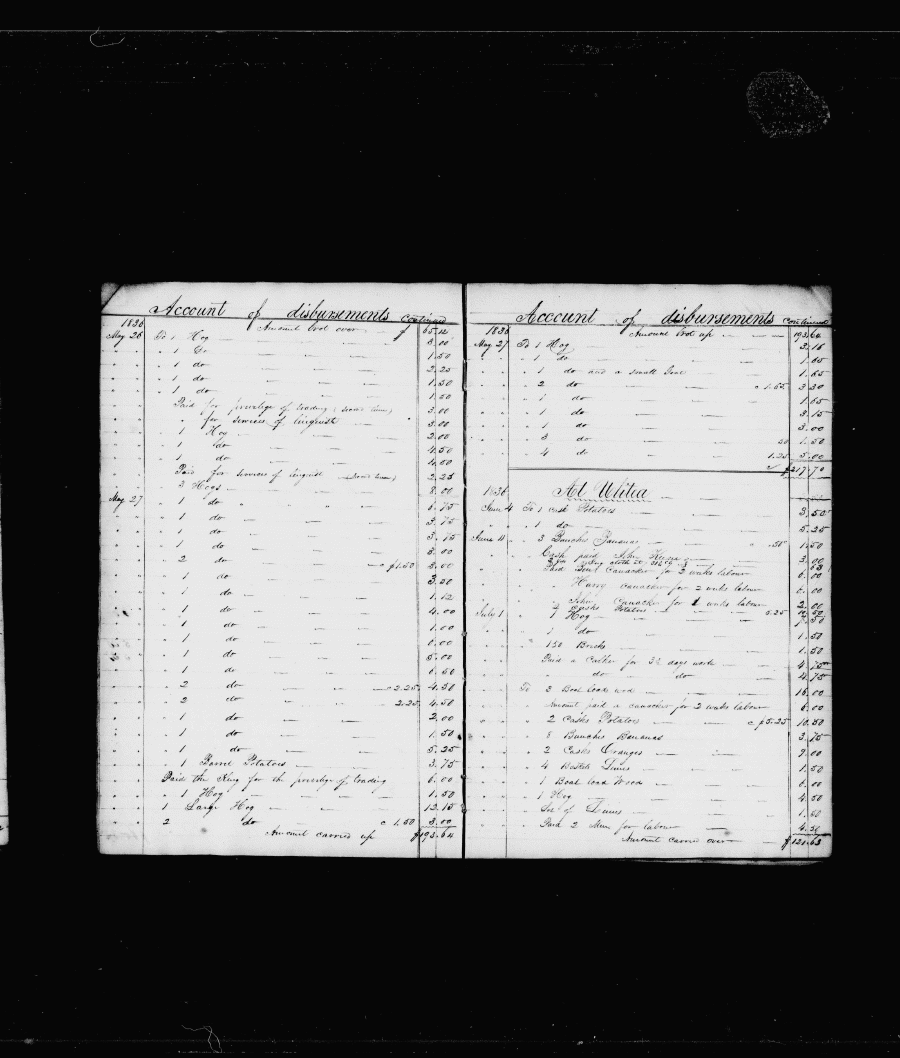 Account of disbursements Continued
1836 Amount brot over $ 65.12
May 26 To 1 Hog 3.00
" " " 1 Do 1.50
" " " 1 do 2.25
" " " 1 do 1.50
" " " 1 do 1.50
Paid for privilege of trading (second time) 3.00
" for services of linguist 3.00
" " 1 Hog 2.00
" " 1 do 4.50
" " 1 do 4.50
Paid for services of linguist (second time) 2.25
" " 3 Hogs 8.00
May 27 " 1 do 6.75
" " 1 do 3.75
" " 1 do 3.15
" " 1 do 3.00
" " 2 do $1.50 3.00
" " 1 do 3.20
" " 1 do 1.12
" " 1 do 4.00
" " 1 do 1.00
" " 1 do 6.00
" " 1 do 5.00
" " 1 do 6.50
" " 2 do c 2.25 4.50
" " 2 do 2.25 4.50
" " 1 do 2.00
" " 1 do 1.50
" " 1 do 5.25
" " 1 Barrel Potatoes 3.75
Paid the King for the privilege of trading 6.00
" " 1 Hog 1.50
" " 1 Large Hog 12.15
" " 2 do c 1.50 3.00
Amount carried up $193.64
Account of disbursements continued
1836 Amount brot up 193.64
May 27 To 1 Hog 3.15
" " " 1 do 1.65
" " " 1 do and a small 1.65
" " " 2 do c 1.65 3.30
" " " 1 do 1.65
" " " 1 do 3.15
" " " 1 do 3.00
" " " 3 do 50 1.50
" " " 4 do 1.25 5.00
$217.70
1836 At Ulitia
June 4 To 1 cask Potatoes 3.50
" " " 1 do 5.25
June 11 " 3 Bunches Bananas " .50 1.50
Cash paid John 3.00
Paid Canacker for 2 weeks labour 6.00
" Harry canacker for 2 weeks labour 6.00
" John Canacker for 1 weeks labour 2.00
" 2 Casks Potatoes 5.25 10.50
July 1 " 1 Hog 7.50
" " " 1 do 1.50
" " " 150 Bricks 1.50
Paid a for days work 4.75
" " do do 4.75
To 2 Boat loads wood 16.00
Amount paid a canacker for 2 weeks labour 6.00
" " 2 Casks Potatoes c $5.25 10.50
" " 8 Bunches Bananas 3.75
" " 2 Casks Oranges 9.00
" " 4 Baskets Limes 1.50
" " 1 Boat load Wood 6.00
" " 1 Hog 4.50
" " Lot of Limes 1.50
" " Paid 2 Men for labour 4.50
Amount carried over $121.63